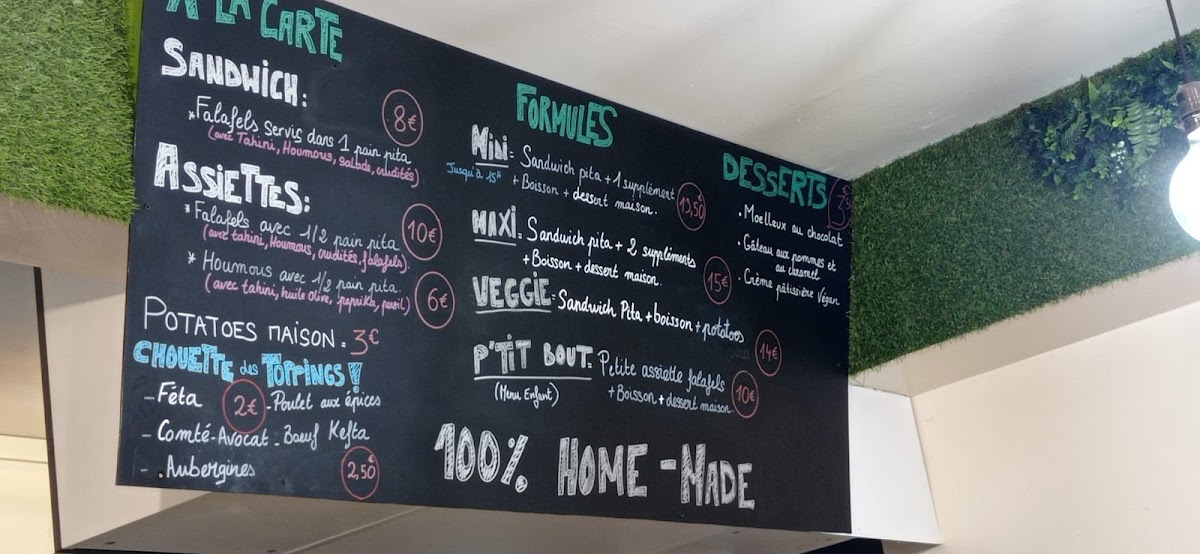 A LA CARTE
SANDWICH:
*Falafels servis dans 1 pain pita 8€
(avec Tahini, Houmous, salade, crudités)
ASSIETTES:
*Falafels avec 1/2 pain pita 10€
(avec tahini, Houmous, crudités, falafels).
* Houmous avec 1/2 pain pita.
(avec tahini, huile olive, paprika, persil) 6€
POTATOES MAISON = 3€
CHOUETTE des TOPPINGS!
- Féta 2€ - Poulet aux épices
- Comté-Avocat - Boeuf Kefta
- Aubergines 2,50€
FORMULES
MIDI = Sandwich pita + 1 supplément
Jusqu'à 15H + Boisson + dessert maison. 13,50
MAXI = Sandwich pita + 2 suppléments
+ Boisson + dessert maison. 15€
VEGGIE = Sandwich Pita + boisson + potatoes
14€
P'TIT BOUT = Petite assiette falafels
(Menu Enfant) + Boisson + dessert maison 10€
100% HOME-MADE
DESSERTS
• Moelleux au chocolat
• Gâteau aux pommes et
au caramel
• Crème pâtissière Végan